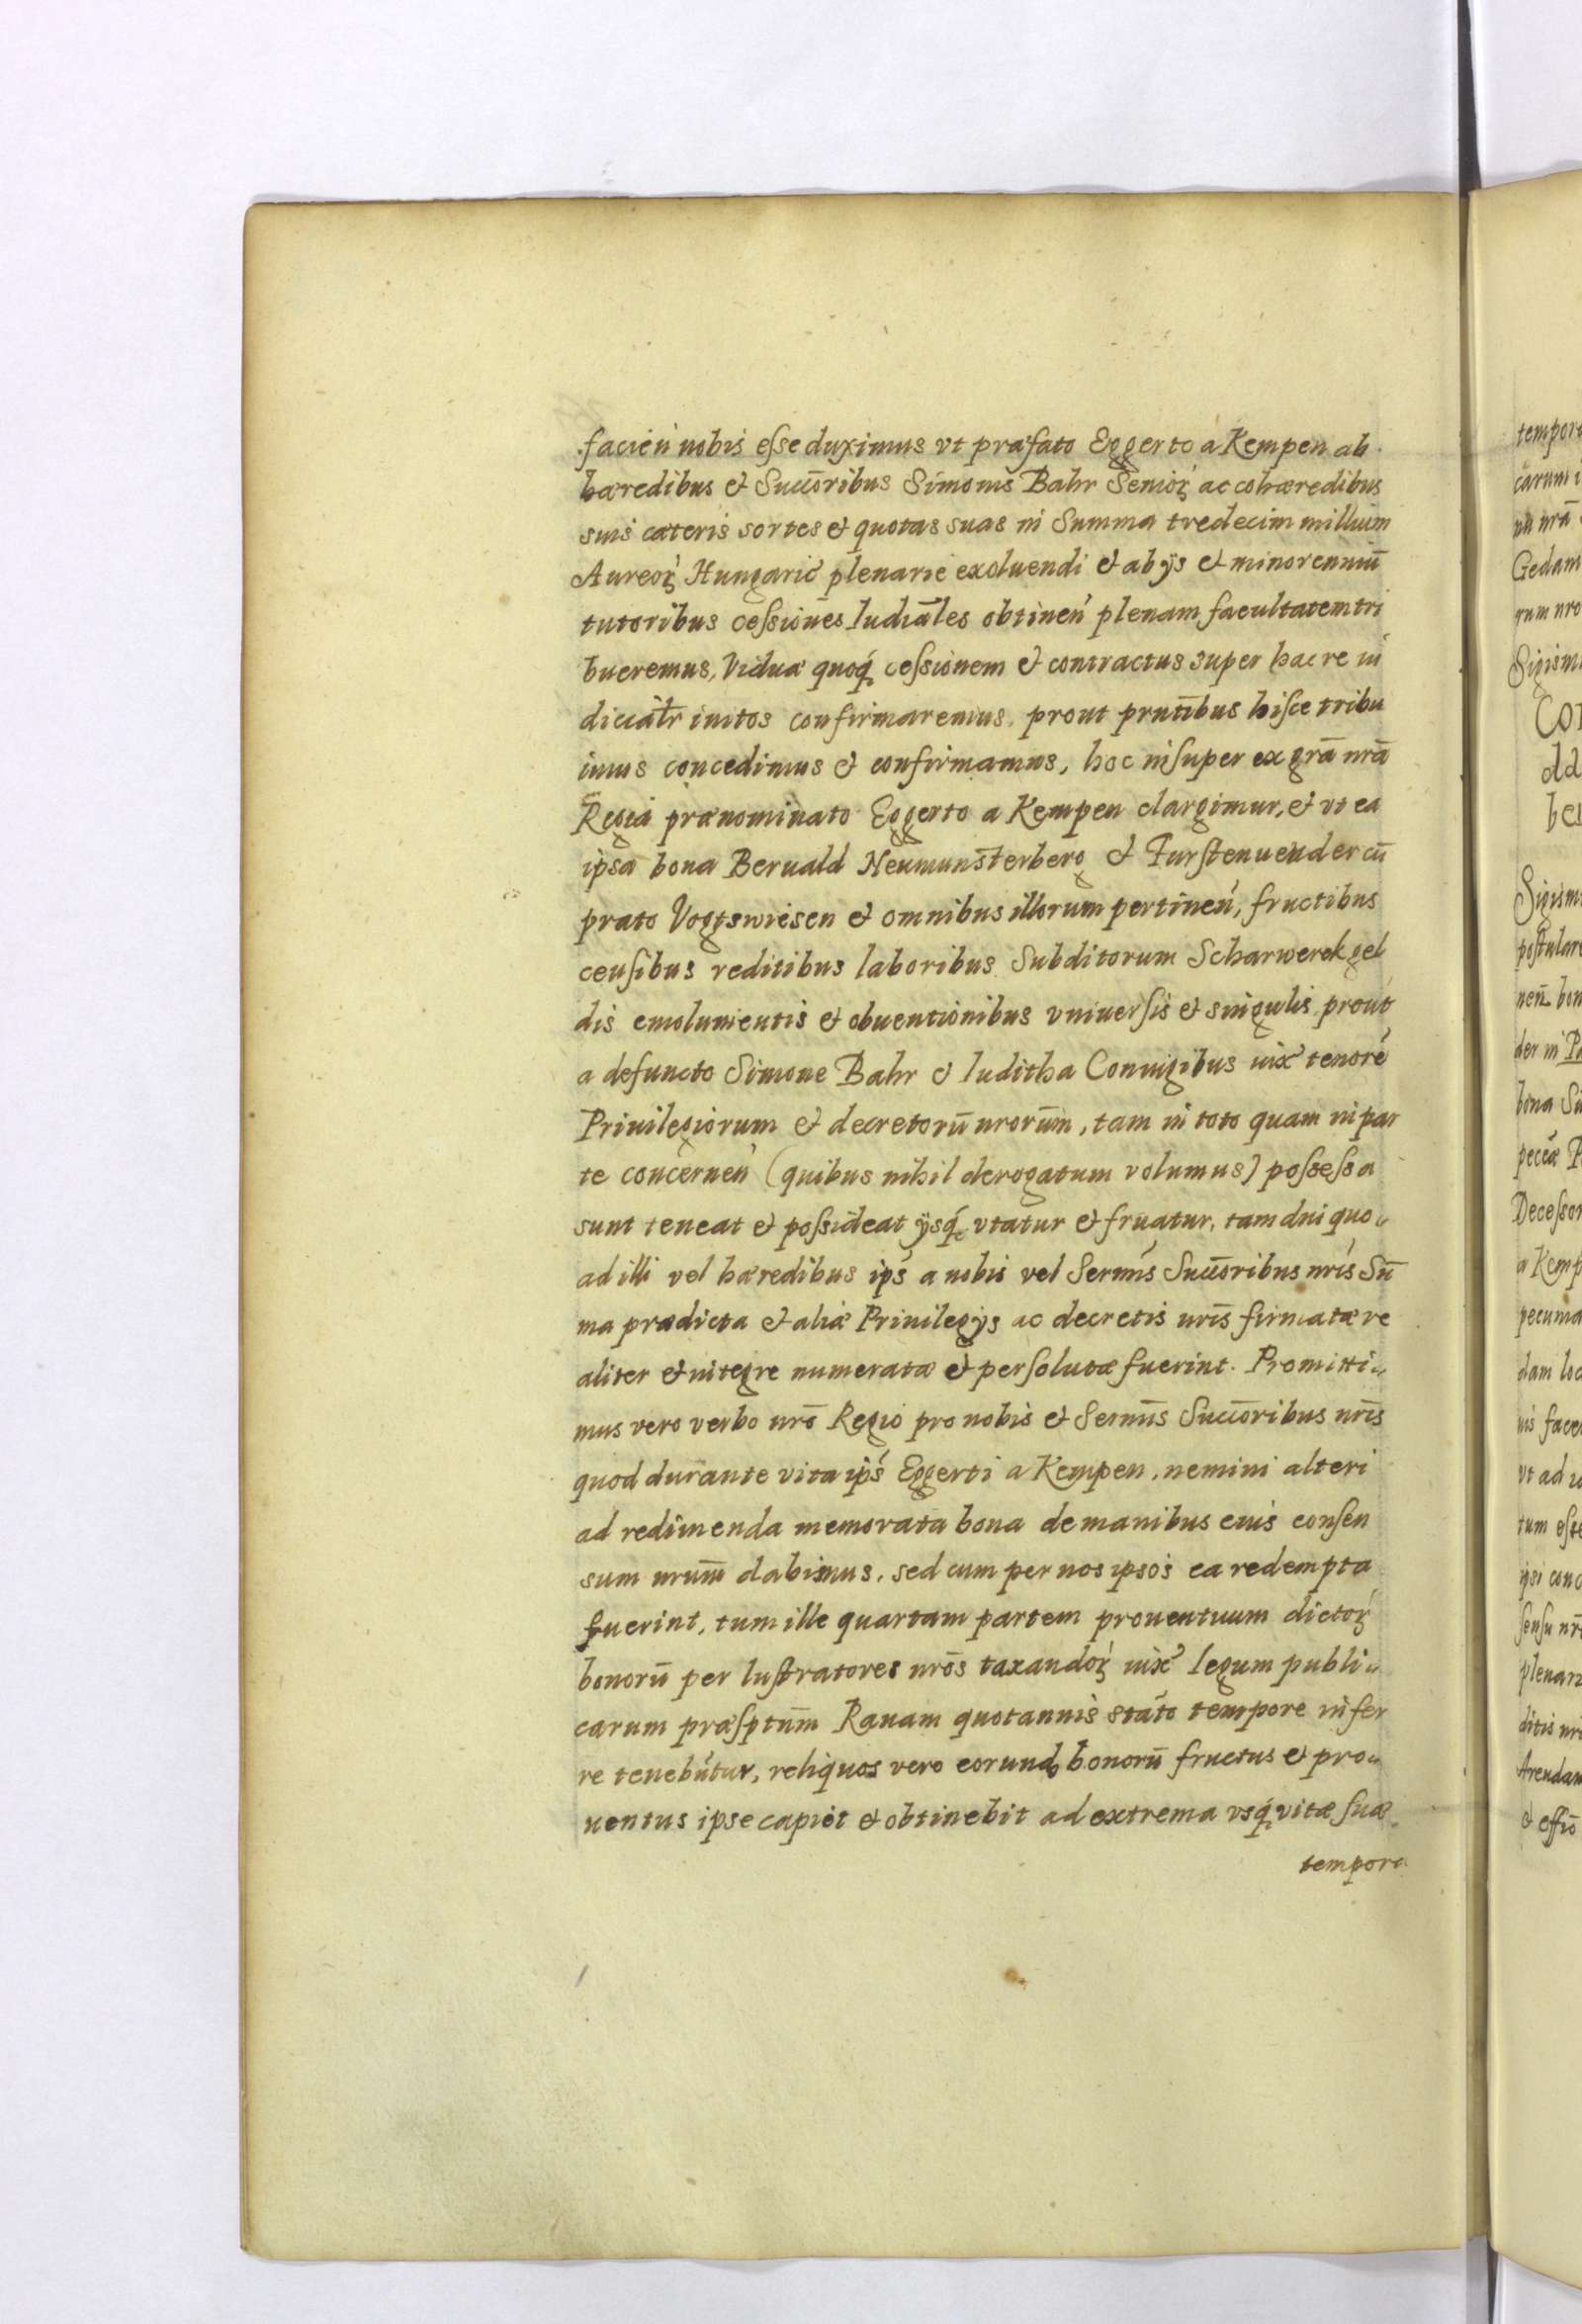 facień nobis esse duximus vt præfato Eggerto a Kempen ab
hæredibus et Succōribus Simonis Bahr Senioꝝ ac cohæredibus
suis cæteris sortes et quotas suas in Summa tredecim millium
Aureoꝝ Hungaric̓ plenarie exoluendi et ab ijs et minorenniū
tutoribus cessiones Iudiāles obtineń plenam facultatem tri
bueremus, Viduæ quoq́ cessionem et contractus super hac re iu
diciatr̄ initos confirmaremus, prout prntībus hisce tribu
imus concedimus et confirmamus, hoc insuper ex grā nrā
Regia prænominato Eggerto a Kempen elargimur, et vt ea
ipsa bona Beruald Neumunsterberg et Furstenuender cū
prato Vogtswiesen et omnibus illorum pertineń, fructibus
censibus reditibus laboribus Subditorum Scharwerck gel
dis emolumentis et obuentionibus vniuersis et singulis prout
a defuncto Simone Bahr et Iuditha Coniugibus iuxᵃ tenore
Priuilegiorum et decretorū nrorūm, tam in toto quam in par
te concerneń (quibus nihil derogatum volumus) possessa
sunt teneat et possideat ijsq́ vtatur et fruatur, tam diu quo„
ad illi vel hæredibus ips̓ a nobis vel Sermīs Succōribus nrīs Sū
ma prædicta et aliæ Priuilegijs ac decretis nrīs firmatæ re
aliter et integre numeratæ et persolutæ fuerint. Promitti„
mus vero verbo nrō Regio pro nobis et Sermīs Succōribus nrīs
quod durante vita ips̓ Eggerti a Kempen, nemini alteri
ad redimenda memorata bona de manibus eius consen
sum nrum̄ dabimus, sed cum per nos ipsos ea redempta
fuerint, tum ille quartam partem prouentuum dictoꝝ
bonorū per lustratores nrōs taxandoꝝ iuxᵃ legum publi„
carum præsptum̄ Rauam quotannis stāto tempore infer
re tenebitur, reliquos vero eorund bonorū fructus et pro„
uentus ipse capiet et obtinebit ad extrema vsq́ vitæ suæ
tempora